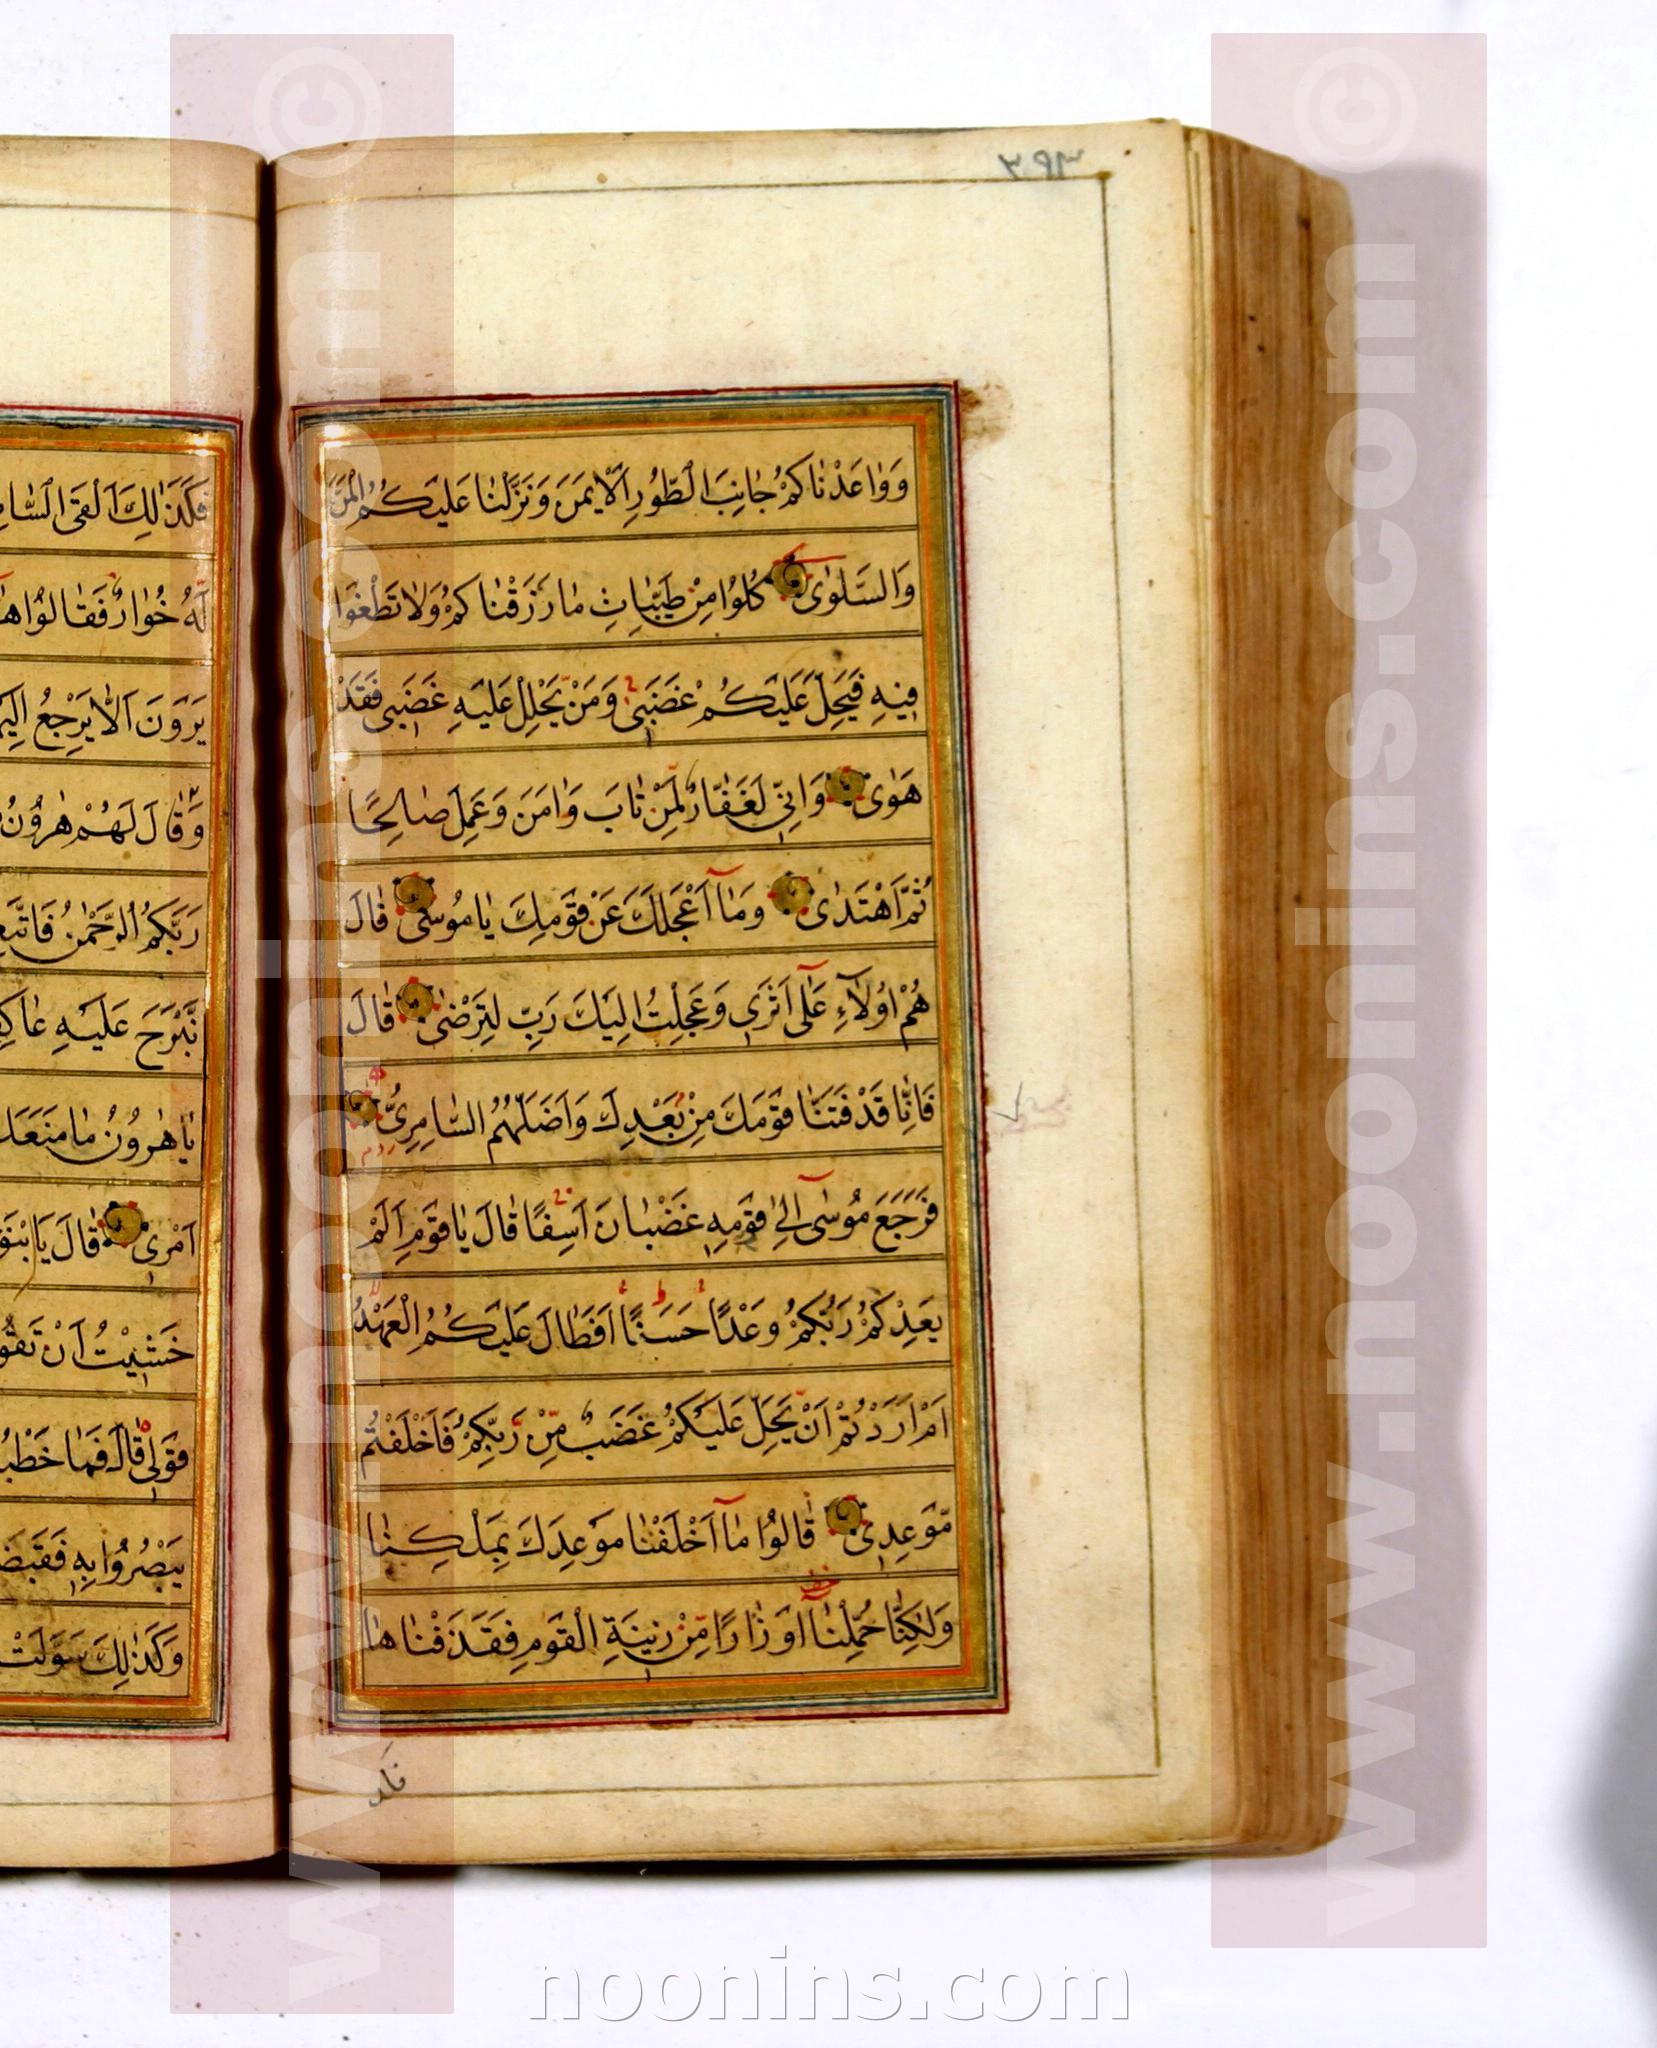 وَوٰاعَدْنٰاكُمْ جٰانِبَ الطُّورِ الْاَيْمَنَ وَنَزَّلْنٰا عَلَيْكُمُ الْمَنَّ
وَالسَّلْوٰى كُلُوا مِنْ طَيِّبٰاتِ مٰا رَزَقْنٰاكُمْ وَلٰا تَطْغَوْا
فِيهِ فَيَحِلَّ عَلَيْكُمْ غَضَبِي وَمَنْ يَحْلِلْ عَلَيْهِ غَضَبِي فَقَدْ
هَوٰى وَاِنِّي لَغَفّٰارٌ لِمَنْ تٰابَ وَاٰمَنَ وَعَمِلَ صٰالِحًا
ثُمَّ اهْتَدٰى وَمٰا اَعْجَلَكَ عَنْ قَوْمِكَ يٰا مُوسٰى قٰالَ
هُمْ اُولٰاءِ عَلٰى اَثَرِي وَعَجِلْتُ اِلَيْكَ رَبِّ لِتَرْضٰى قٰالَ
فَاِنّٰا قَدْ فَتَنّٰا قَوْمَكَ مِنْ بَعْدِكَ وَاَضَلَّهُمُ السّٰامِرِيُّ
فَرَجَعَ مُوسٰى اِلٰى قَوْمِهِ غَضْبٰانَ اَسِفًا قٰالَ يٰا قَوْمِ اَلَمْ
يَعِدْكُمْ رَبُّكُمْ وَعْدًا حَسَنًا اَفَطٰالَ عَلَيْكُمُ الْعَهْدُ
اَمْ اَرَدْتُمْ اَنْ يَحِلَّ عَلَيْكُمْ غَضَبٌ مِنْ رَبِّكُمْ فَاَخْلَفْتُمْ
مَوْعِدِي قٰالُوا مٰا اَخْلَفْنٰا مَوْعِدَكَ بِمَلْكِنٰا
وَلٰكِنّٰا حُمِّلْنٰا اَوْزٰارًا مِنْ زِينَةِ الْقَوْمِ فَقَذَفْنٰاهٰا
فكذ
فَكَذٰلِكَ اَلْقَى
لَهُ خُوٰارٌ فَقٰالُوا
يَرَوْنَ اَلّٰا يَرْجِعُ
وَقٰالَ لَهُمْ هٰرُونُ
رَبَّكُمُ الرَّحْمٰنُ
نَبْرَحَ عَلَيْهِ
يٰا هٰرُونُ مٰا مَنَعَكَ
اَمْرِي قٰالَ
خَشِيتُ اَنْ
قَوْلِي قٰالَ فَمٰا
يَبْصُرُوا بِهِ
وَكَذٰلِكَ سَوَّلَتْ
www.noonins.com ©
www.noonins.com ©
noonins.com